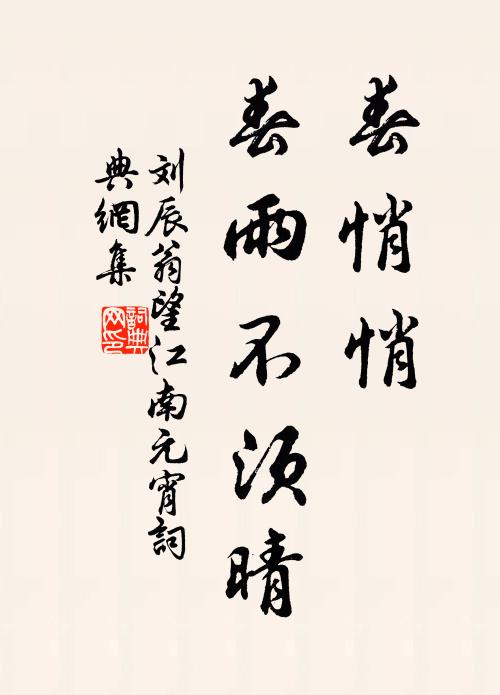 春悄悄
春雨不須晴
刘辰翁望江南元宵詞
典網集
詞典
网印